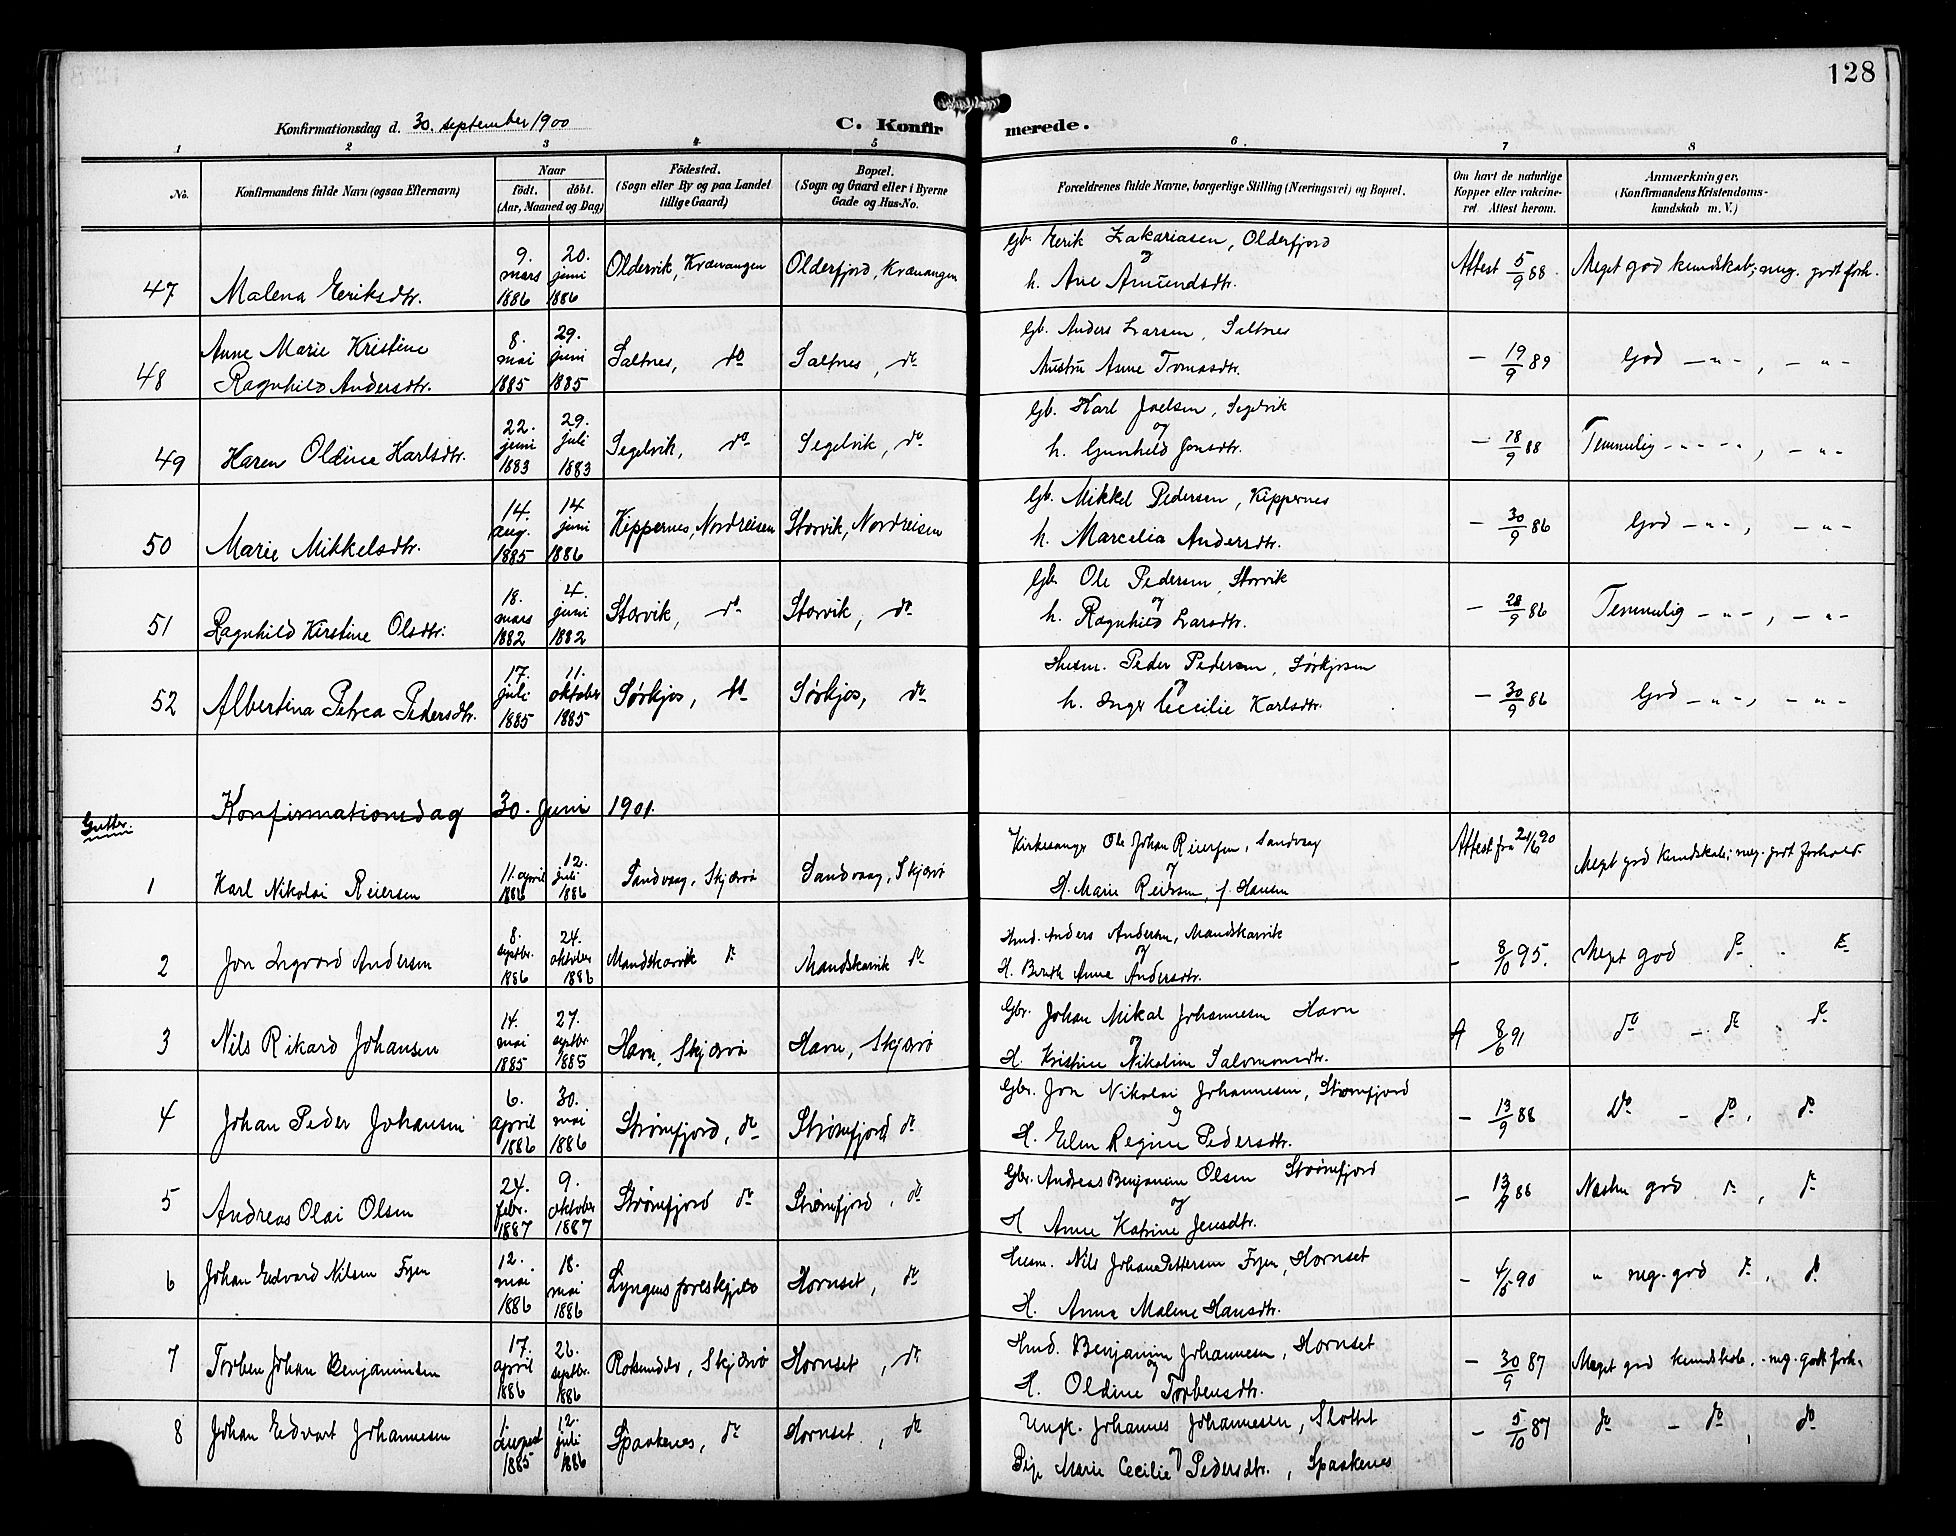 128
Konfirmationsdag d. 30. september 1900
C. Konfirmerede.
1 2 3 4 5 6 7 8
No. Konfirmandens fulde Navn (ogsaa Efternavn) Naar født. døbt. (Aar, Maaned og Dag) Fødested. (Sogn eller By og paa Landet tillige Gaard) Bopæl. (Sogn og Gaard eller i Byerne Gade og Hus-No. Forældrenes fulde Navne, borgerlige Stilling (Næringsvei) og Bopæl. Om havt de naturlige Kopper eller vakcineret. Attest herom. Anmærkninger. (Konfirmandens Kristendomskundskab m. V.)
47 Malena Eriksdtr. 9. mars 1886 20. juni 1886 Oldervik, Kvænangen Olderfjord, Kvænangen Gb. Erik Zakariasen, Olderfjord og h. Ane Amundsdtr. Attest 5/9 88 Meget god kundskab; meg. godt forh.
48 Anne Marie Kristine Ragnhild Andersdtr. 8. mai 1885 29. juni 1885 Saltnes, do Saltnes, do Gb. Anders Larsen, Saltnes Hustru Anne Tomasdtr. - 19/9 89 God - " - , - " -
49 Karen Oldine Karlsdtr. 22. juni 1883 29. juli 1883 Segelvik, do Segelvik, do Gb. Karl Joelsen, Segelvik og h. Gunhild Jonsdtr. - 18/9 88 Temmelig - " - " - , - " -
50 Marie Mikkelsdtr. 14. aug. 1885 14 juni 1886 Kippernes, Nordreisen Storvik, Nordreisen Gb. Mikkel Pedersen, Kippernes h. Marcelia Andersdtr. - 30/9 86 God - " - , - " -
51 Ragnhild Kirstine Olsdtr. 18. mars 1882 4. juni 1882 Storvik, do Storvik, do Gb. Ole Pedersen, Storvik og h. Ragnhild Larsdtr. - 28/9 86 Temmelig - " - , - " -
52 Albertina Petrea Pedersdtr. 17. juli 1885 11. oktober 1885 Sørkjos, do Sørkjos, do Husm. Peder Pedersen, Sørkjosen og h. Inger Cecilie Karlsdtr. - 30/9 86 God - " - , - " -
Konfirmationsdag 30. juni 1901.
Gutter.
1 Karl Nikolai Reiersen 11. april 1886 12. juli 1886 Sandvaag, Skjærvø Sandvaag, Skjærvø Kirkesanger Ole Johan Reiersen, Sandvaag og H. Marie Reiersen, f. Hansen Attest fra 21/6 90 Meget god kundskab; meg. godt forhold.
2 Jon Ingvard Andersen 8. septbr. 1886 24. oktober 1886 Mandskarvik do Mandskarvik do Hmd. Anders Andersen, Mandskarvik og H. Berith Anne Andersdtr. - 8/10 95. Meget god do do
3 Nils Rikard Johansen 14. mai 1885 27. septbr. 1885 Havn, Skjærvø Havn, Skjærvø Gbr. Johan Mikal Johannesen Havn og H. Kristine Nikoline Salomonsdtr. A 8/6 91 do - do do
4 Johan Peder Johansen 6. april 1886 30. mai 1886 Strømfjord, do Strømfjord do Gbr. Jon Nikolai Johannesen, Strømfjord og H. Elen Regine Pedersdtr. - 13/9 88 Do - do, do
5 Andreas Olai Olsen 24. febr. 1887 9. oktober 1887 Strømfjord do Strømfjord, do Gbr. Andreas Benjamin Olsen Strømfjord og H Anne Katrine Jensdtr. - 13/9 88 Næsten god do, do
6 Johan Edvard Nilsen Fyen 12. mai 1886 18. mai 1886 Lyngens prestegjeld Hornset, do Husm. Nils Johan Pettersen Fyen, Hornset H. Anna Malene Hansdtr. - 4/5 90 " meg. god do, do
7 Torben Johan Benjaminsen 17. april 1886 26. septbr. 1886 Rotsundelv, Skjærvø Hornset, do Hmd. Benjamin Johannesen, Hornset og H. Oldine Torbensdtr. - 30/9 87 Meget god kundskab, meg. godt forh.
8 Johan Edvart Johannesen 1. august 1885 12. juli 1886 Spaakenes, do Hornset, do Ungk. Johannes Johannesen, Slottet og Pige Marie Cecilie Pedersdtr., Spaakenes - 5/10 87 do - do, do